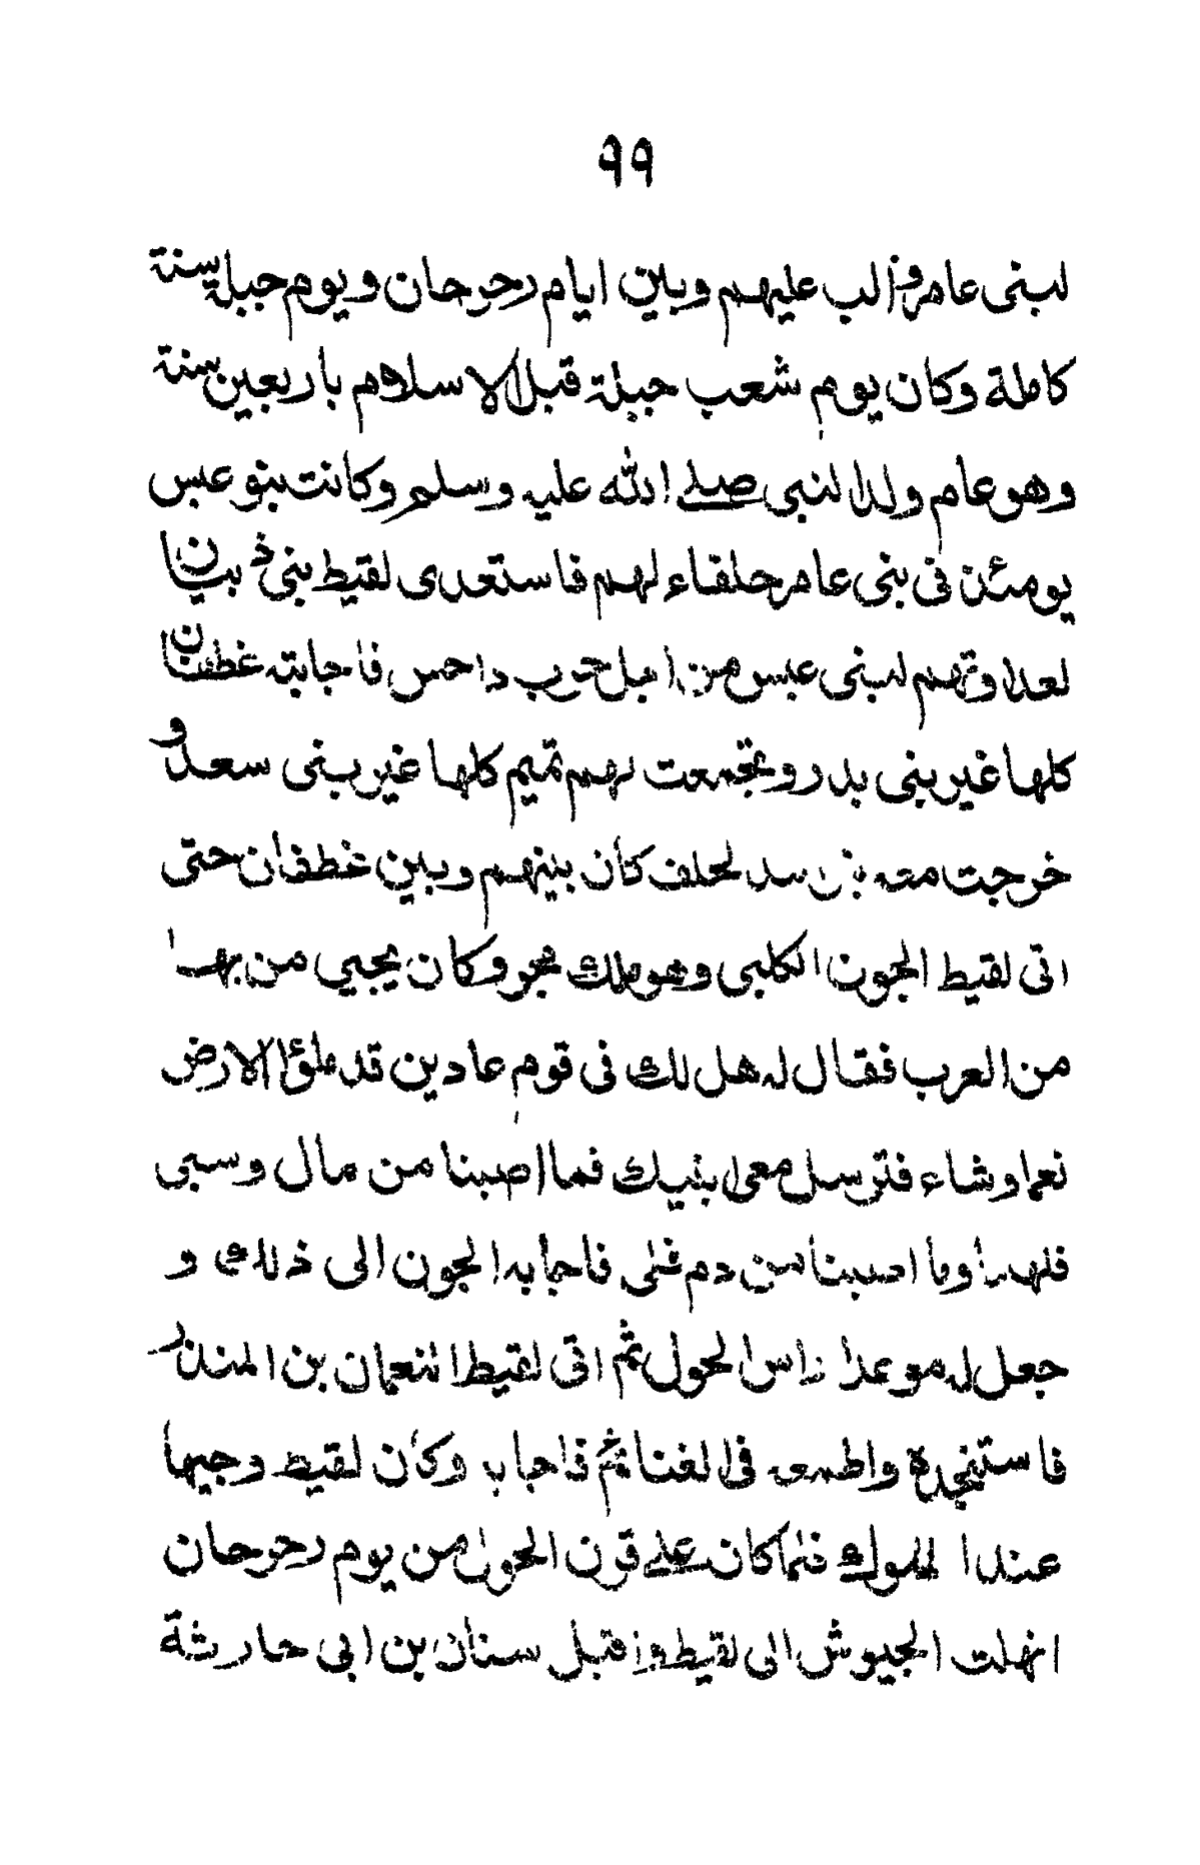 ٩٩
لبنى عامر والب عليهم وبين ايام رحرحان ويوم جبلة سنة
كاملة وكان يوم شعب جبلة قبل الاسلام باربعين سنة
وهو عام ولد النبى صلى الله عليه وسلم وكانت بنو عبس
يومئذ فى بنى عامر حلفاء لهم فاستعدى لقيط بنى ذبيان
لعداوتهم لبنى عبس من اجل حرب داحس فاجابته غطفان
كلها غير بنى بدر وتجمعت لهم تميم كلها غير بنى سعد و
خرجت معه بنو اسد لحلف كان بينهم وبين غطفان حتى
اتى لقيط الجون الكلبى وهو ملك هجر وكان يجيي من بها
من العرب فقال له هل لك فى قوم عادين قد ملؤا الارض
نعما وشاء فترسل معى ابنيك فما اصبنا من مال وسبى
فلهما وما اصبنا من دم فلى فاجابه الجون الى ذلك و
جعل له موعدا راس الحول ثم اتى لقيط النعمان بن المنذر
فاستنجده واطمعه فى الغنائم فاجاب وكان لقيط وجيها
عند الملوك فلما كان على قرن الحول من يوم رحرحان
انهلت الجيوش الى لقيط واقبل سنان بن ابى حارثة